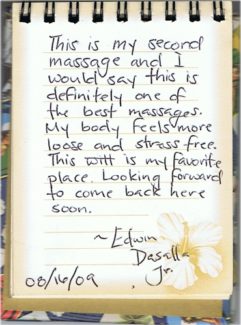 This is my second
massage and I
would say this is
definitely one of
the best massages.
My body feels more
loose and strass free.
This is my favorite
place. Looking forward
to come back here
soon.
~Edwin
Dasalla
Jr.
08/16/09